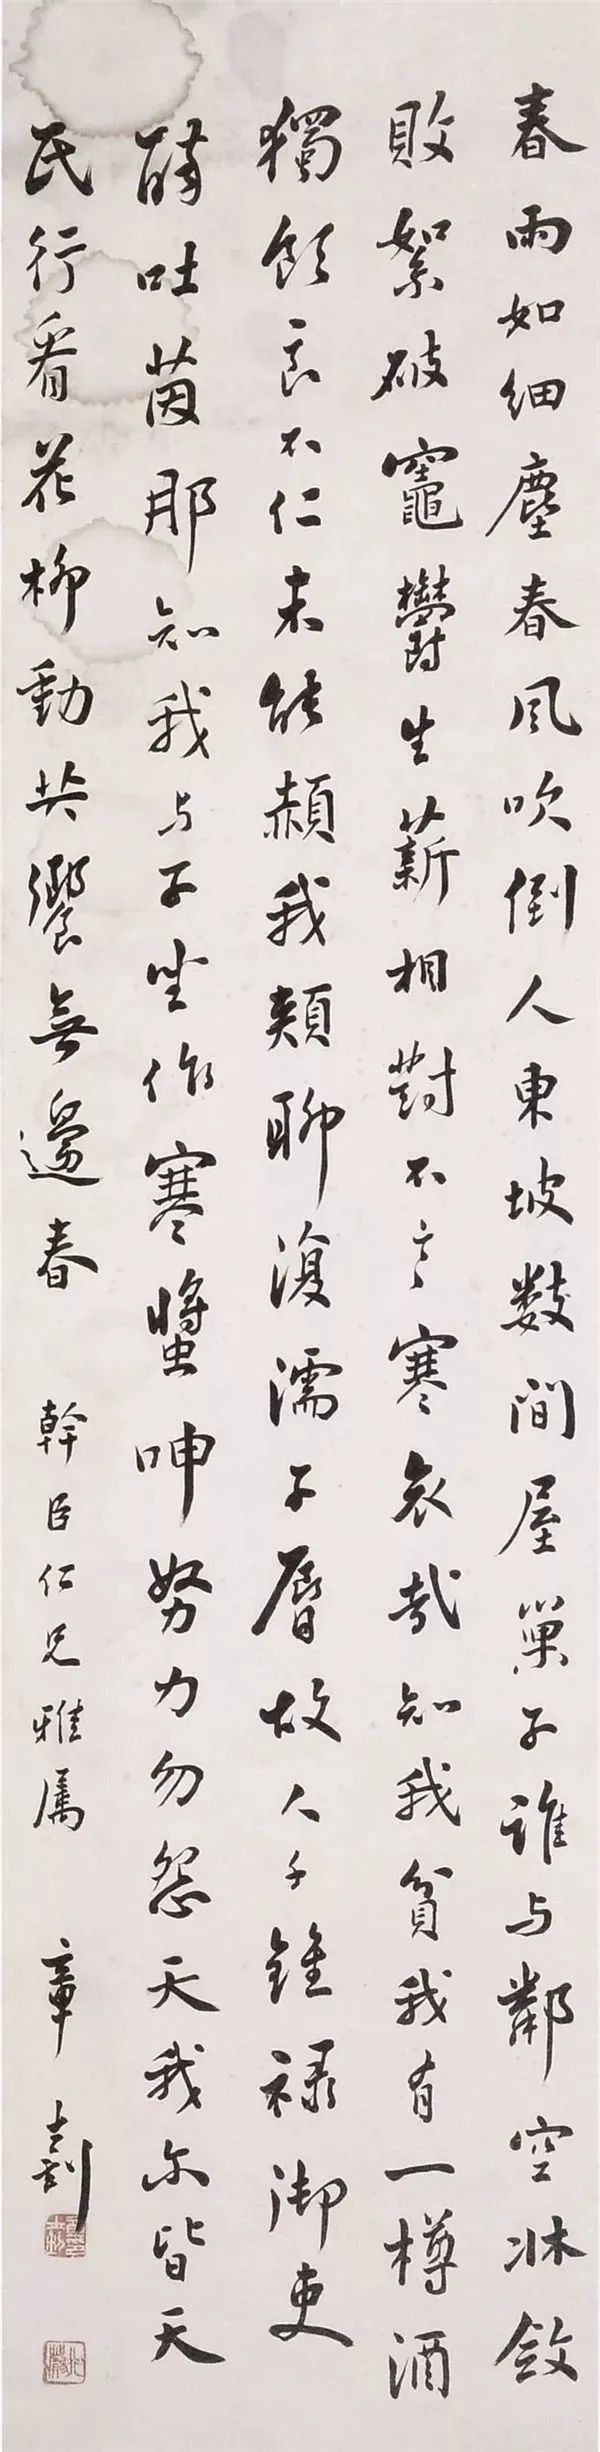 春雨如細塵春風吹倒人東坡數間屋巢子誰與鄰空牀斂
敗絮破竈鬱生薪相對不言寒哀哉知我貧我有一樽酒
獨飲良不仁未能赬我頰聊復濡子脣故人千鍾祿御吏
醉吐茵那知我與子坐作寒螿呻努力勿怨天我尔皆天
民行看花柳動共饗無邊春 幹臣仁兄雅屬 章士釗